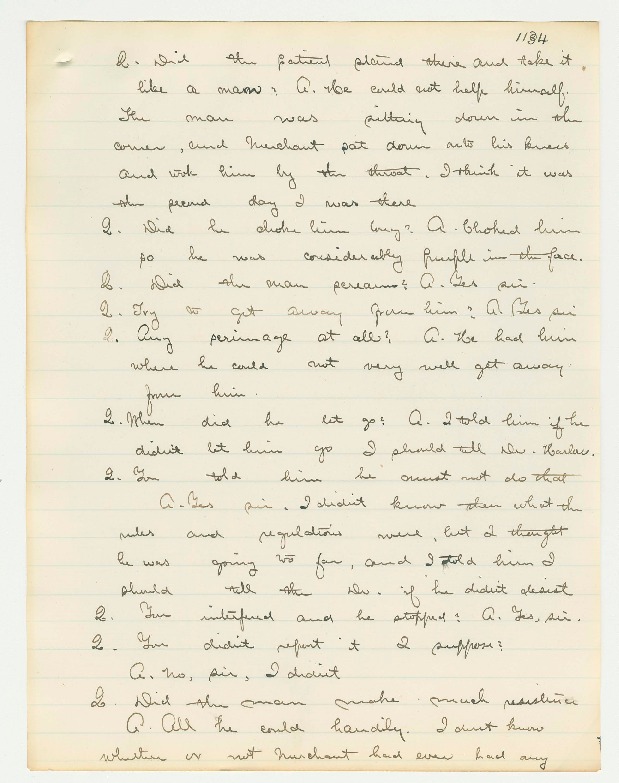 1134
Q. Did the patient stand there and take it
like a man? A. He could not help himself.
The man was sitting down in the
corner, and Merchant sat down onto his knees
and took him by the throat. I think it was
the second day I was there
Q. Did he choke him long? A. Choked him
so he was considerably purple in the face.
Q. Did the man scream? A. Yes sir.
Q. Try to get away from him? A. Yes sir
Q. Any scrimage at all? A. He had him
where he could not very well get away
from him.
Q. When did he let go? A. I told him if he
didnt let him go I should tell Dr. Harlow.
Q. You told him he must not do that
A. Yes sir. I didnt know then what the
rules and regulations were, but I thought
he was going to far, and I told him I
should tell the Dr. if he didnt desist
Q. You interfered and he stopped? A. Yes, sir.
Q. You didnt report it I suppose?
A. No, sir, I didnt
Q. Did the man make much resistence
A. All he could handily. I dont know
whether or not Merchant had ever had any